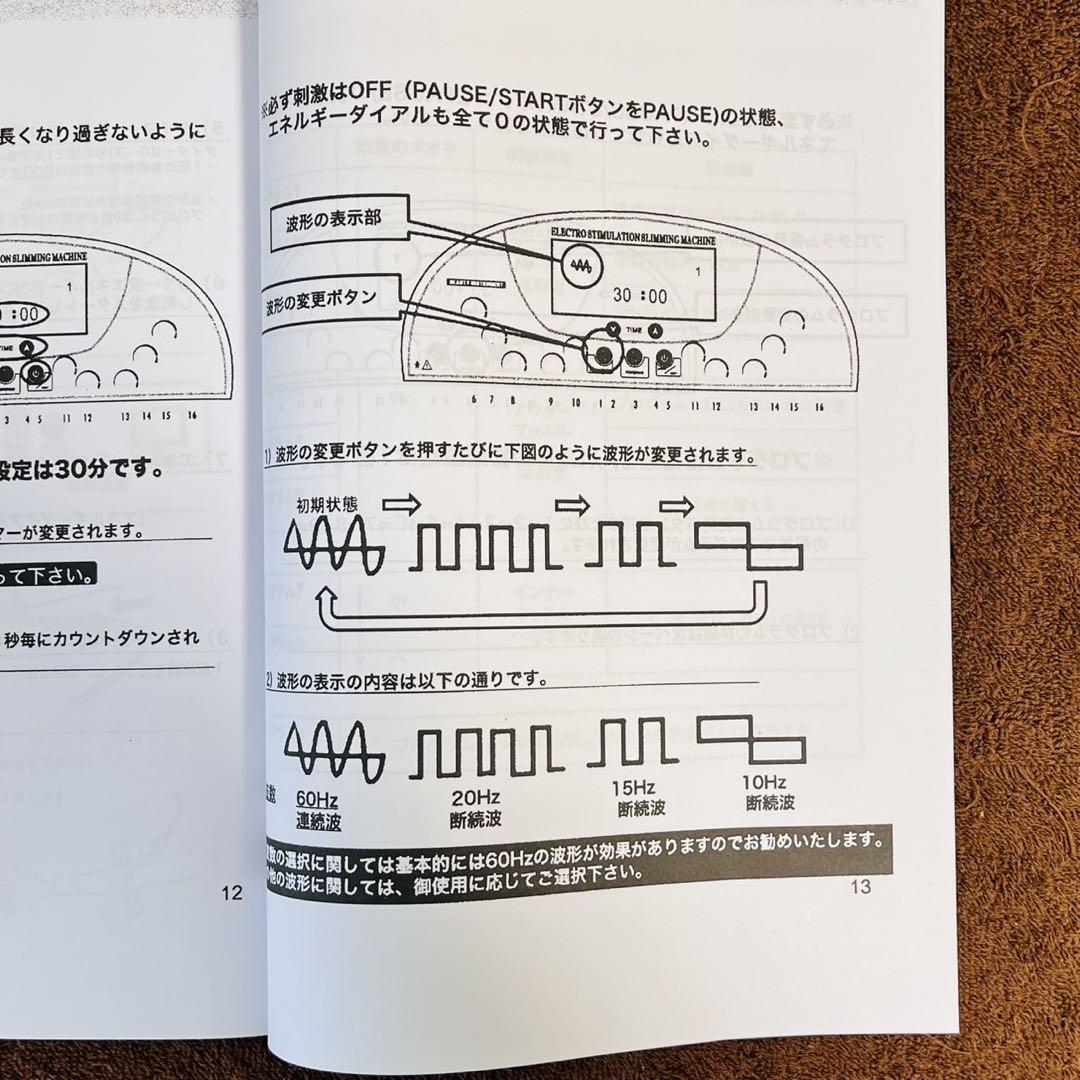 長くなり過ぎないように
ON SLIMMING MACHINE
1
:00
TIME
3 4 5 11 12 13 14 15 16
設定は30分です。
マーが変更されます。
って下さい。
秒毎にカウントダウンされ
12
※必ず刺激はOFF（PAUSE/STARTボタンをPAUSE)の状態、
エネルギーダイアルも全て０の状態で行って下さい。
波形の表示部
ELECTRO STIMULATION SLIMMING MACHINE
1
波形の変更ボタン
30 :00
TIME
6 7 8 9 10 1 2 3 4 5 11 12 13 14 15 16
1）波形の変更ボタンを押すたびに下図のように波形が変更されます。
初期状態
2）波形の表示の内容は以下の通りです。
数 60Hz 20Hz 15Hz 10Hz
連続波 断続波 断続波 断続波
数の選択に関しては基本的には60Hzの波形が効果がありますのでお勧めいたします。
他の波形に関しては、御使用に応じてご選択下さい。
13